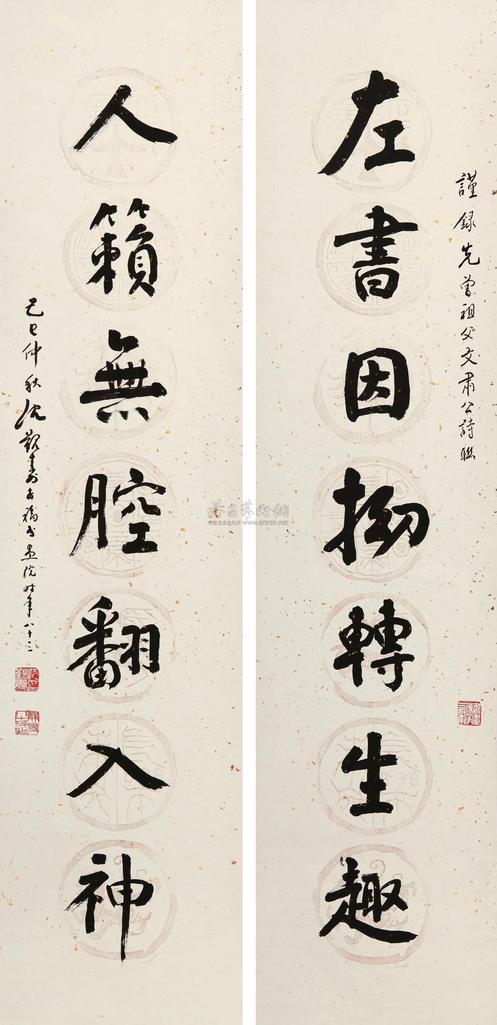 謹録先曾祖父文肅公詩聯
左書因拗轉生趣
人籟無腔翻入神
己巳仲秋沈觀壽
時年八十三